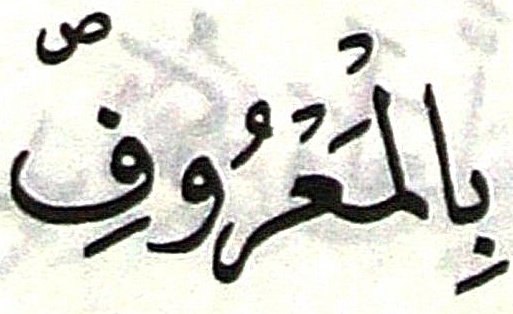 بِالْمَعْرُوفِ ۖص